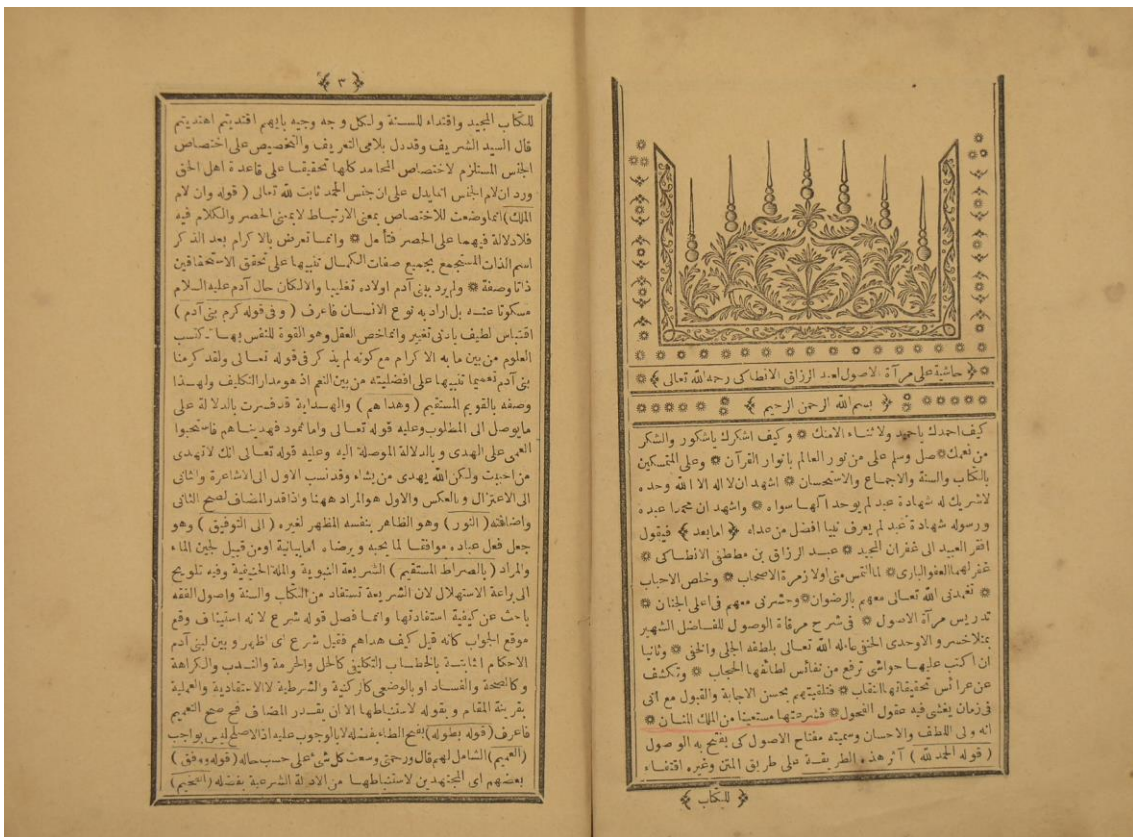 حاشية على مرآة الاصول لعبد الرزاق الانطاكى رحمه الله تعالى
بسم الله الرحمن الرحيم
كيف احمدك ياحميد ولا ثناء الا منك وكيف اشكرك ياشكور والشكر
من نعمك صل وسلم على من نور العالم بانوار القرآن وعلى المتمسكين
بالكتاب والسنة والاجماع والاستحسان اشهد ان لااله الا الله وحده
لاشريك له شهادة عبد لم يوحد الها سواه واشهد ان محمدا عبده
ورسوله شهادة عبد لم يعرف نبيا افضل من عداه امابعد فيقول
افقر العبيد الى غفران المجيد عبد الرزاق بن مصطفى الانطاكى
غفر لهما العفو البارى لما التمس منى اولا زمرة الاصحاب وخلص الاحباب
تغمدنى الله تعالى معهم بالرضوان وحشرنى معهم فى اعلى الجنان
تدريس مرآة الاصول فى شرح مرقاة الوصول للفاضل الشهير
بمنلاخسرو الاوحدى الحنفى عامله الله تعالى بلطفه الجلى والخفى وثانيا
ان اكتب عليها حواشى ترفع من نفائس لطائفها الحجاب وتكشف
عن عرائس تحقيقاتها النقاب فتلقيتهم بحسن الاجابة والقبول مع انى
فى زمان يغشى فيه عقول الفحول فشردتها مستعينا من الملك المنان
انه ولى اللطف والاحسان وسميته مفتاح الاصول كى يفتح به الوصول
( قوله الحمد لله ) آثر هذه الطريقة على طريق المتن وغيره اقتفاء
للكتاب
٣
للكتاب المجيد واقتداء للسنة ولكل وجه وجيه بايهم اقتديتم اهتديتم
قال السيد الشريف وقددل بلامى التعريف والتخصيص على اختصاص
الجنس المستلزم لاختصاص المحامد كلها تحقيقا على قاعدة اهل الحق
ورد ان لام الجنس انمايدل على ان جنس الحمد ثابت لله تعالى ( قوله وان لام
الملك ) انماوضعت للاختصاص بمعنى الارتباط لابمعنى الحصر والكلام فيه
فلادلالة فيهما على الحصر فتأمل وانما تعرض بالاكرام بعد الذكر
اسم الذات المستجمع بجميع صفات الكمال تنبيها على تحقق الاستحقاقين
ذاتا وصفة ولم يرد ببنى آدم اولاده تغليبا والالكان حال آدم عليه السلام
مسكوتا عنه بل اراد به نوع الانسان فاعرف ( وفى قوله كرم بنى آدم )
اقتباس لطيف بادنى تغيير وانماخص العقل وهو القوة للنفس بها تكتسب
العلوم من بين ما به الاكرام مع كونه لم يذكر فى قوله تعالى ولقد كرمنا
بنى آدم تعميما تنبيها على افضليته من بين النعم اذ هو مدار التكليف ولهذا
وصفه بالقويم المستقيم ( وهداهم ) والهداية قدفسرت بالدلالة على
مايوصل الى المطلوب وعليه قوله تعالى واما ثمود فهديناهم فاستحبوا
العمى على الهدى و بالدلالة الموصلة اليه وعليه قوله تعالى انك لاتهدى
من احببت ولكن الله يهدى من يشاء وقدنسب الاول الى الاشاعرة والثانى
الى الاعتزال و بالعكس والاول هو المراد ههنا واذا قدر المضاف لصح الثانى
واضافته ( النور ) وهو الظاهر بنفسه المظهر لغيره ( الى التوفيق ) وهو
جعل فعل عباده موافقا لما يحبه و يرضاه امابيانية اومن قبيل لجين الماء
والمراد ( بالصراط المستقيم ) الشريعة النبوية والملة الحنيفية وفيه تلويح
الى براعة الاستهلال لان الشريعة تستفاد من الكتاب والسنة واصول الفقه
باحث عن كيفية استفادتها وانما فصل قوله شرع لانه استيناف وقع
موقع الجواب كانه قيل كيف هداهم فقيل شرع اى اظهر وبين لبنى آدم
الاحكام الثابتة بالخطاب التكليفى كالحل والحرمة والندب والكراهة
وكالصحة والفساد او بالوضعى كالركنية والشرطية لاالاعتقادية والعملية
بقرينة المقام و بقوله لاستنباطها الا ان يقدر المضاف فح صح التعميم
فاعرف ( قوله بطوله ) بفتح الطاء بفضله لابالوجوب عليه اذ الاصلح ليس بواجب
( العميم ) الشامل لهم قال ورحمتى وسعت كل شئ على حسب حاله ( قوله ووفق )
بعضهم اى المجتهدين لاستنباطها من الادلة الشرعية بفضله